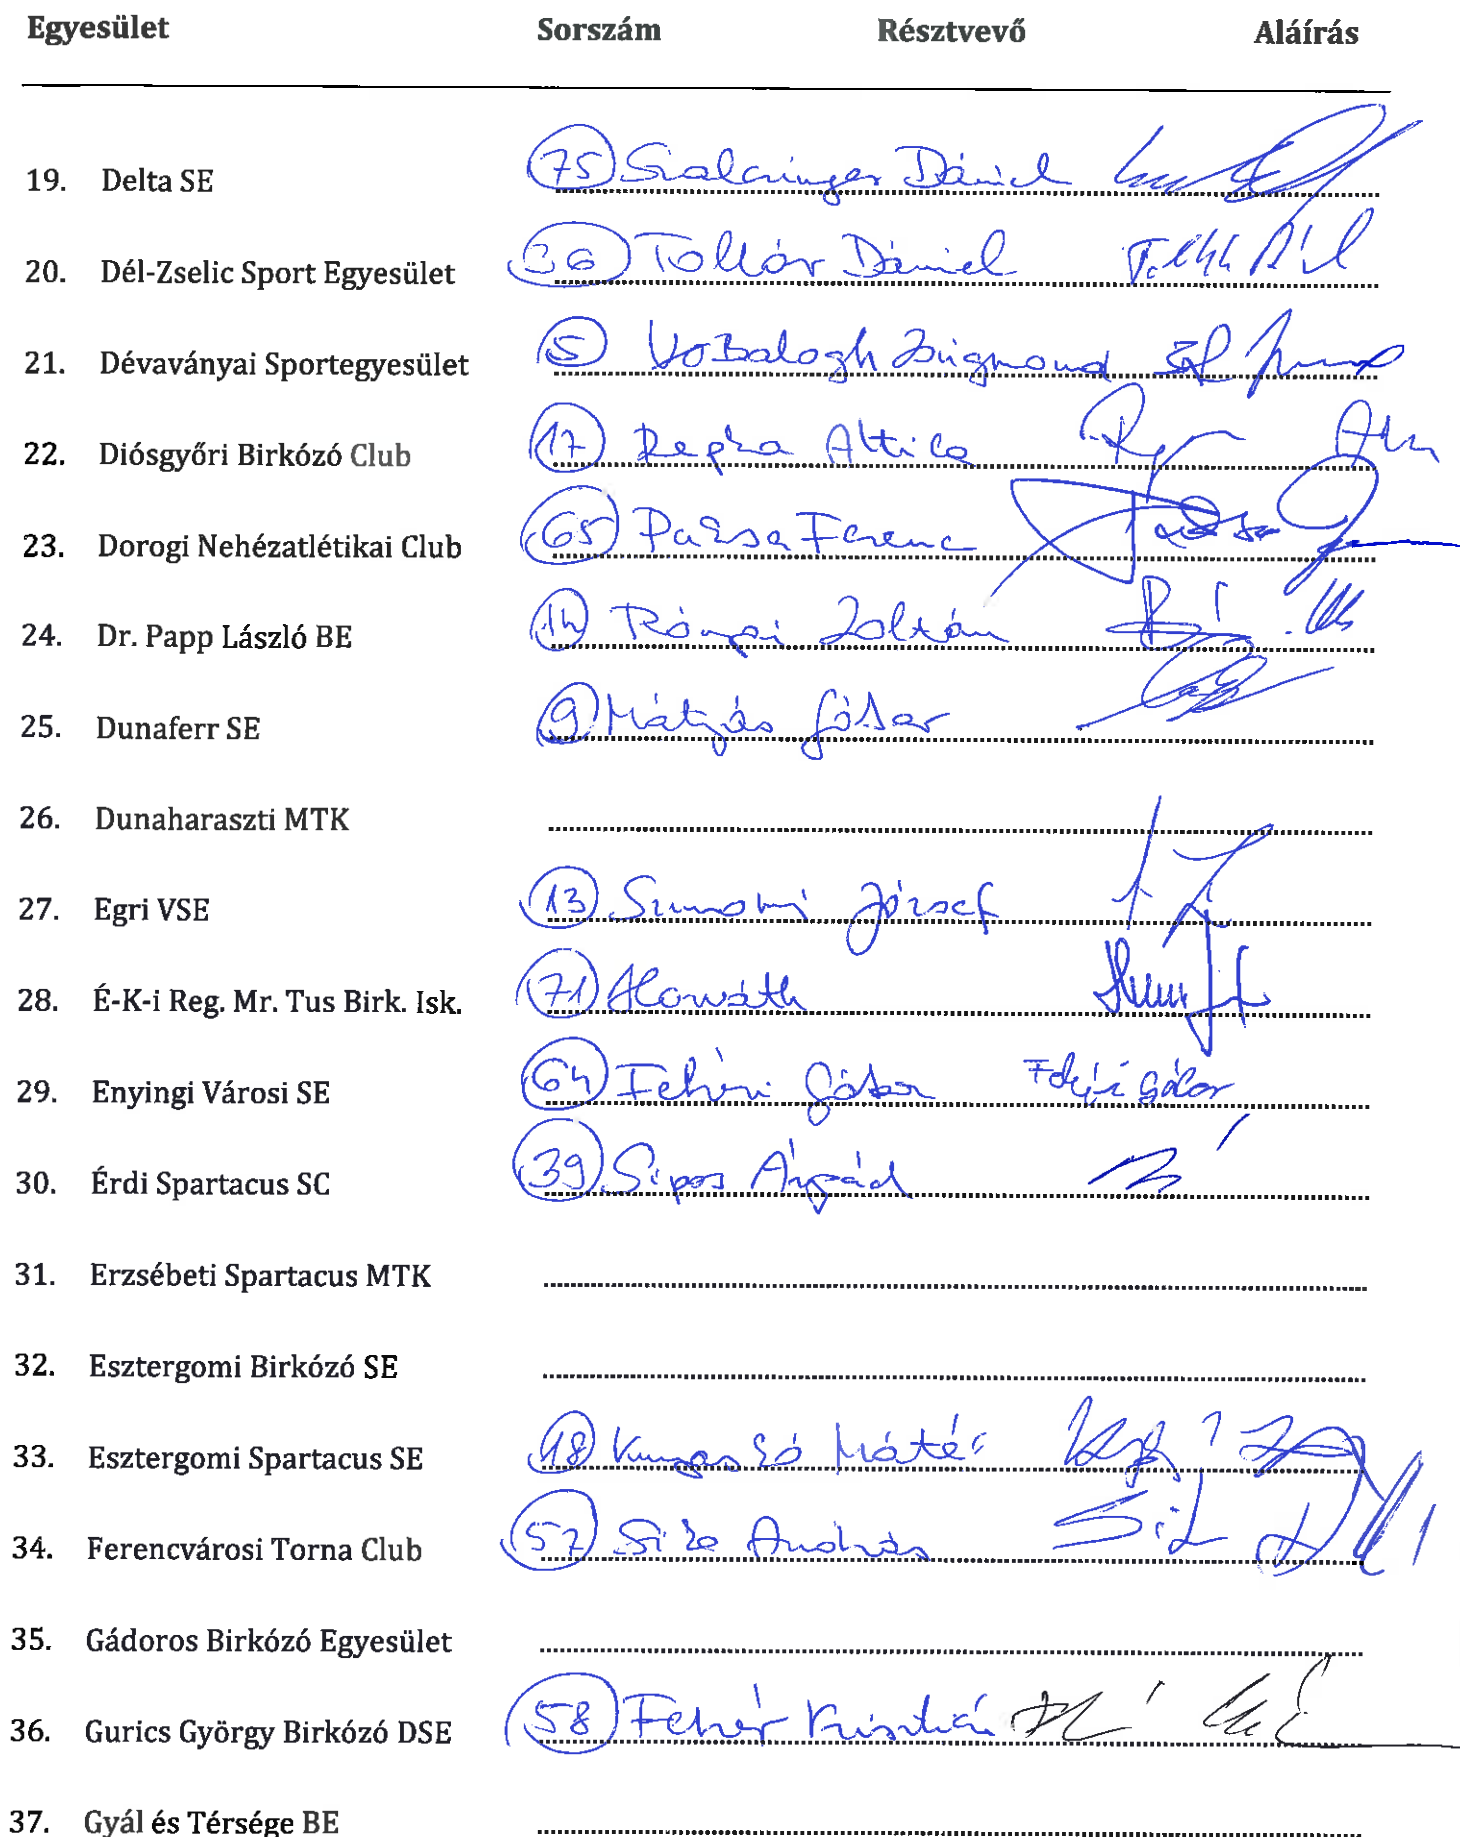 Egyesület Sorszám Résztvevő Aláírás
19. Delta SE 75 Szalczinger Dániel
20. Dél-Zselic Sport Egyesület 36 Tollár Dániel
21. Dévaványai Sportegyesület 5 Balogh Zsigmond
22. Diósgyőri Birkózó Club 17 Repka Attila
23. Dorogi Nehézatlétikai Club 65 Ferenc
24. Dr. Papp László BE 14 Rónyai Zoltán
25. Dunaferr SE 9 Mátyás Gábor
26. Dunaharaszti MTK
27. Egri VSE 13 József
28. É-K-i Reg. Mr. Tus Birk. Isk. 71 Horváth
29. Enyingi Városi SE 64 Gábor
30. Érdi Spartacus SC 39 Sipos Árpád
31. Erzsébeti Spartacus MTK
32. Esztergomi Birkózó SE
33. Esztergomi Spartacus SE 18 Máté
34. Ferencvárosi Torna Club 57 Sike András
35. Gádoros Birkózó Egyesület
36. Gurics György Birkózó DSE 58 Fehér Krisztián
37. Gyál és Térsége BE